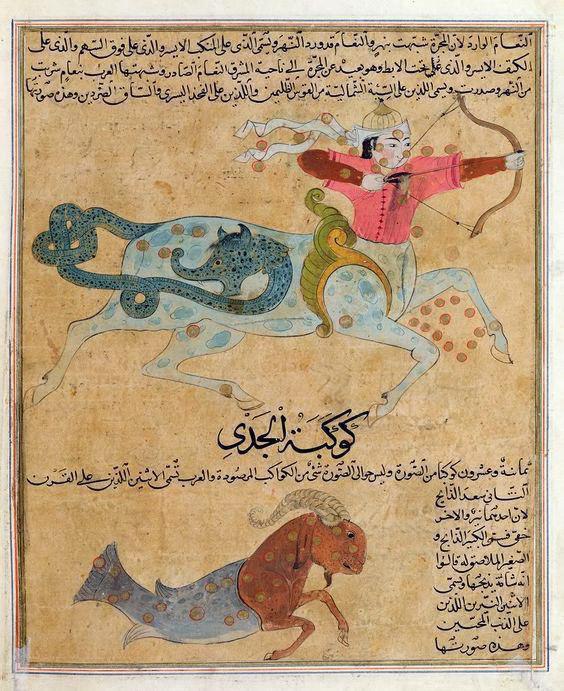 النعام الوارد لان المجرة شبهت بنهر والنعام قد ورد النهر ويسمى الذى على المنكب الايسر والذى على فوق السهم والذى على
الكتف الايسر والذى على تحت الابط وهو بعيد عن المجرة الى ناحية المشرق النعام الصادر وشبهتها العرب بنعام شربت
من النهر وصدرت ويسمى اللذين على السية الشمالية من القوس الظليمين واللذين على الفخذ اليسرى والساق الصردين وهذه صورتها
كوكبة الجدى
ثمانية وعشرون كوكبا من الصورة وليس حوالى الصورة شئ من الكواكب المرصودة والعرب تسمى الاثنين اللذين على القرن
الثانى سعد الذابح
لان احد ثمانية والاخر
خفى فسمى الكبير الذابح و
الصغير الملاصق له قالوا
انه شاته يذبحها ويسمى
الاثنين النيرين اللذين
على الذنب المحبين
وهذه صورتها